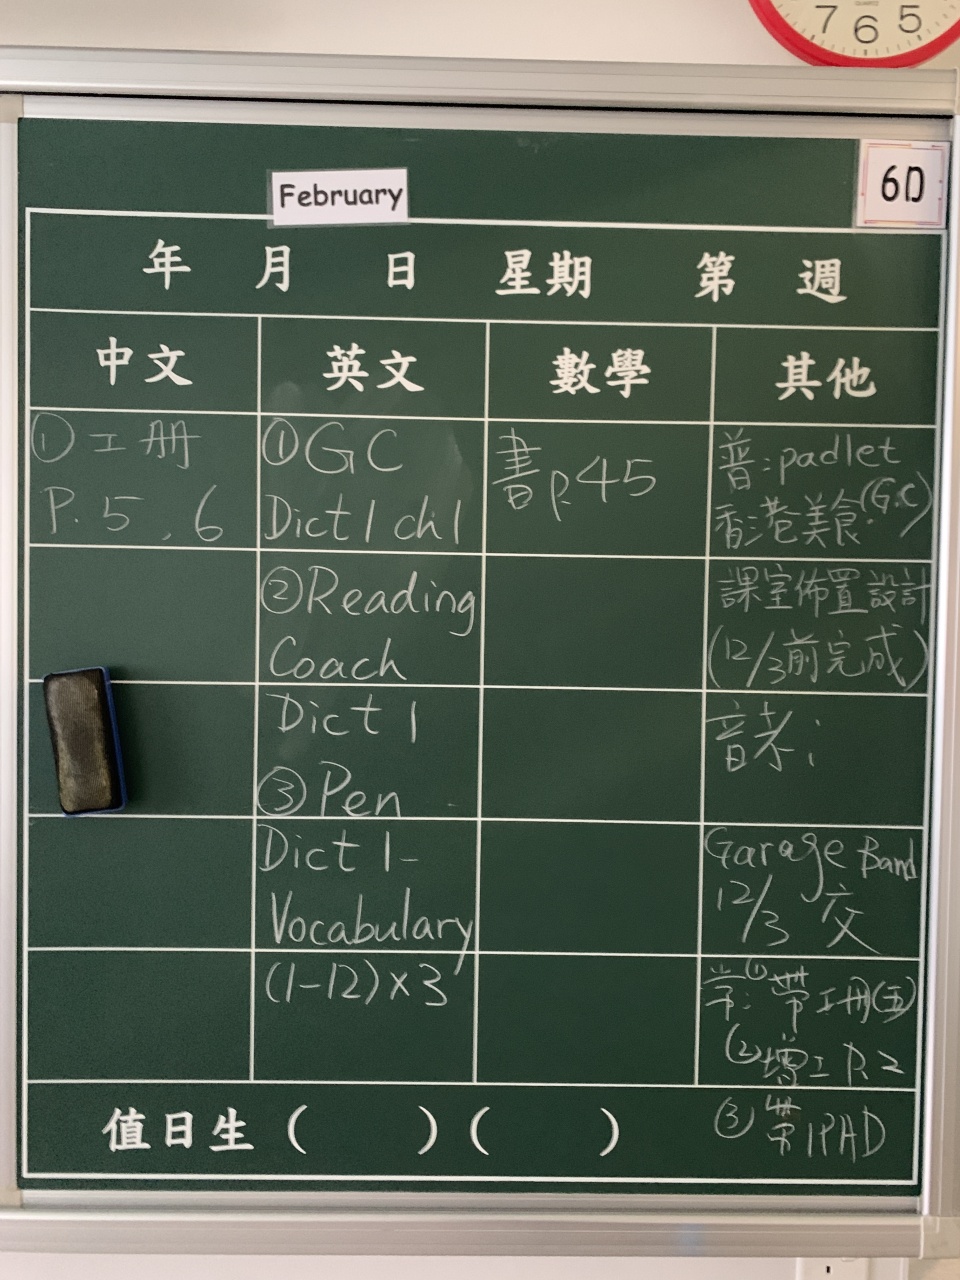 7 6 5
QUARTZ
February
6D
年 月 日 星期 第 週
中文 英文 數學 其他
① 工册
P. 5 , 6
① GC
Dict 1 ch 1
② Reading
Coach
Dict 1
③ Pen
Dict 1-
Vocabulary
(1-12) x 3
書 p.45
普: padlet
香港美食 (G.C)
課室佈置設計
(12/3前完成)
音考:
Garage Band
12/3 交
常: (1) 帶工冊(五)
(2) 增工 P.2
③ 帶 IPAD
值日生 ( ) ( )